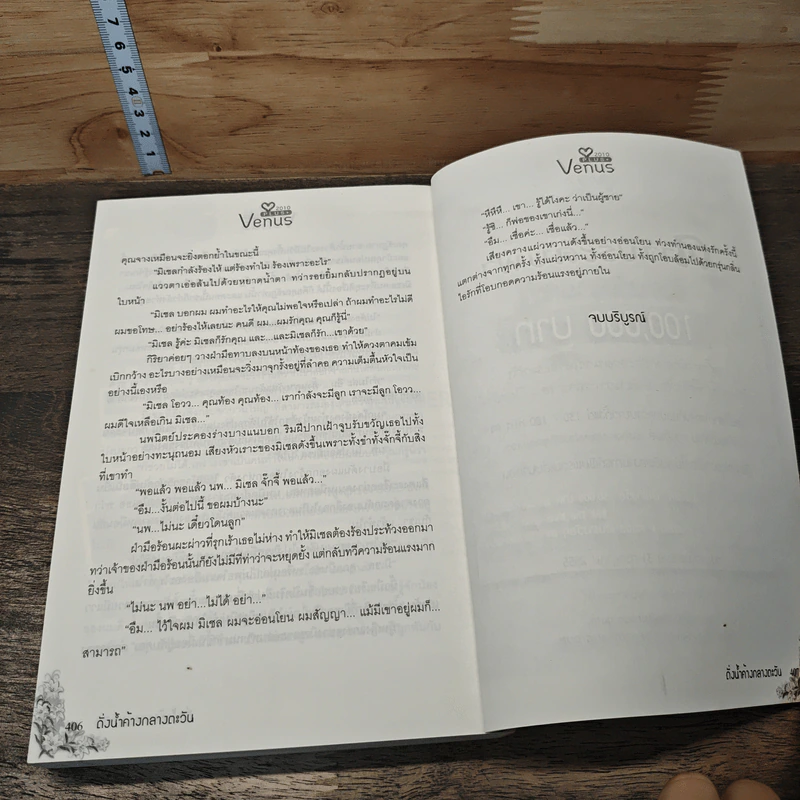 7
6
5
4
3
2
1
2010
PLUS+
Venus
คุณจางเหมือนจะยิ่งตอกย้ำในขณะนี้
"มิเชลกำลังร้องไห้ แต่ร้องทำไม ร้องเพราะอะไร"
แววตาเอ่อล้นไปด้วยหยาดน้ำตา ทว่ารอยยิ้มกลับปรากฏอยู่บน
ใบหน้า
"มิเชล บอกผม ผมทำอะไรให้คุณไม่พอใจหรือเปล่า ถ้าผมทำอะไรไม่ดี
ผมขอโทษ... อย่าร้องให้เลยนะ คนดี ผม...ผมรักคุณ คุณก็รู้นี่"
"มิเชล รู้ค่ะ มิเชลก็รักคุณ และ...และมิเชลก็รัก...เขาด้วย"
กิริยาค่อยๆ วางฝ่ามือทาบลงบนหน้าท้องของเธอ ทำให้ดวงตาคมเข้ม
เบิกกว้าง อะไรบางอย่างเหมือนจะวิ่งมาจุกรั้งอยู่ที่ลำคอ ความเต็มตื้นหัวใจเป็น
อย่างนี้เองหรือ
"มิเชล โอวว... คุณท้อง คุณท้อง... เรากำลังจะมีลูก เราจะมีลูก โอวว...
ผมดีใจเหลือเกิน มิเชล..."
นพนิตย์ประคองร่างบางแนบอก ริมฝีปากเฝ้าจูบรับขวัญเธอไปทั้ง
ใบหน้าอย่างทะนุถนอม เสียงหัวเราะของมิเชลดังขึ้นเพราะทั้งขำทั้งจั๊กจี้กับสิ่ง
ที่เขาทำ
"พอแล้ว พอแล้ว นพ... มิเชล จั๊กจี้ พอแล้ว..."
"อืม...งั้นต่อไปนี้ ขอผมบ้างนะ"
"นพ...ไม่นะ เดี๋ยวโดนลูก"
ฝ่ามือร้อนผะผ่าวที่รุกเร้าเธอไม่ห่าง ทำให้มิเชลต้องร้องประท้วงออกมา
ทว่าเจ้าของฝ่ามือร้อนนั้นก็ยังไม่มีทีท่าว่าจะหยุดยั้ง แต่กลับทวีความร้อนแรงมาก
ยิ่งขึ้น
"ไม่นะ นพ อย่า...ไม่ได้ อย่า..."
"อืม... ไว้ใจผม มิเชล ผมจะอ่อนโยน ผมสัญญา... แม้มีเขาอยู่ผมก็...
สามารถ"
406 ดั่งน้ำค้างกลางตะวัน
2010
PLUS+
Venus
"หึหึหึ... เขา... รู้ได้ไงคะ ว่าเป็นผู้ชาย"
"รู้ซิ... ก็พ่อของเขาเก่งนี่..."
"อืม... เชื่อค่ะ... เชื่อแล้ว..."
เสียงครางแผ่วหวานดังขึ้นอย่างอ่อนโยน ห่วงทำนองแห่งรักครั้งนี้
แตกต่างจากทุกครั้ง ทั้งแผ่วหวาน ทั้งอ่อนโยน ทั้งถูกโอบล้อมไปด้วยกรุ่นกลิ่น
ไอรักที่โอบกอดความร้อนแรงอยู่ภายใน
จบบริบูรณ์
ดั่งน้ำค้างกลางตะวัน